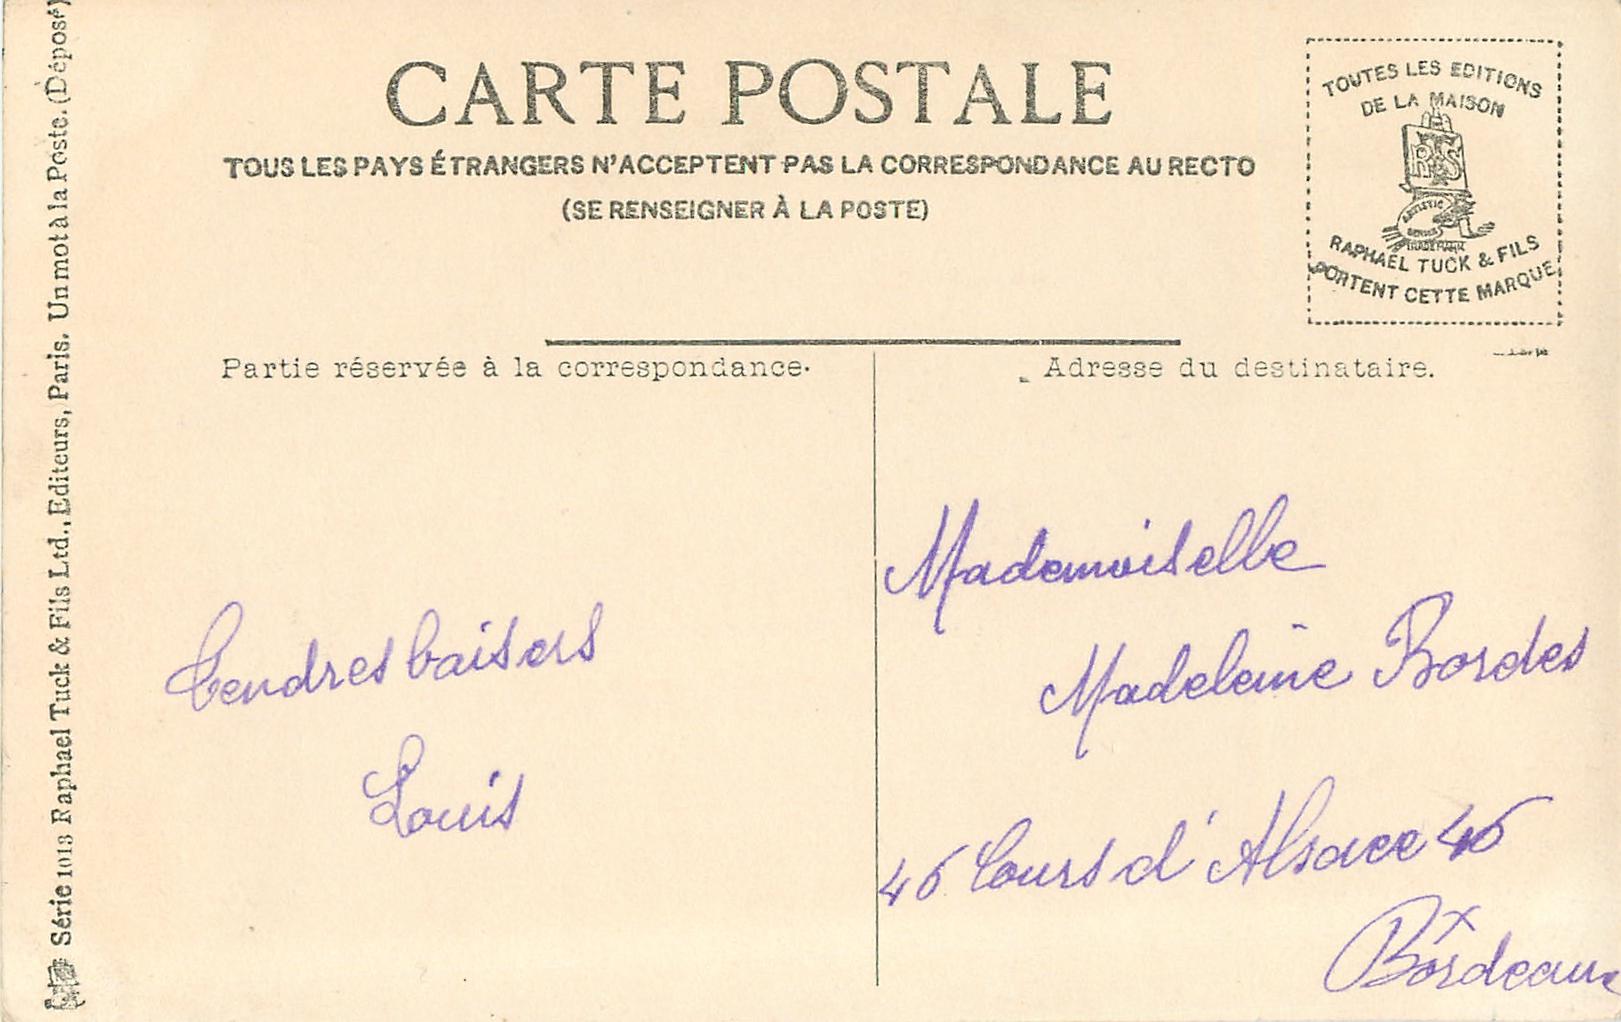 CARTE POSTALE
TOUS LES PAYS ÉTRANGERS N'ACCEPTENT PAS LA CORRESPONDANCE AU RECTO
(SE RENSEIGNER À LA POSTE)
TOUTES LES EDITIONS
DE LA MAISON
R T S
ARTISTIC
SERIES
TRADEMARK
RAPHAEL TUCK & FILS
PORTENT CETTE MARQUE
Partie réservée à la correspondance.
Adresse du destinataire.
Tendres baisers
Louis
Mademoiselle
Madeleine Bordes
46 Cours d'Alsace 46
Bordeaux
Série 1013 Raphael Tuck & Fils Ltd., Editeurs, Paris. Un mot à la Poste. (Déposé)